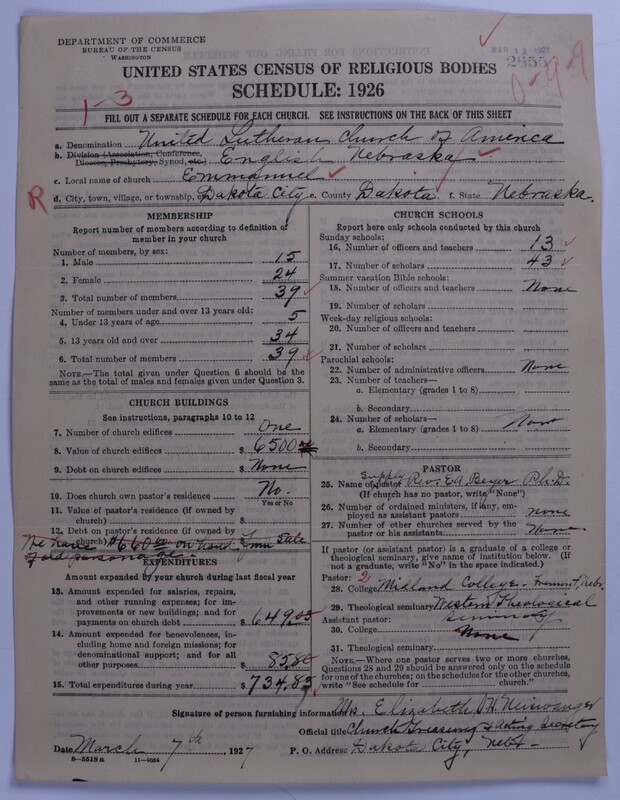 DEPARTMENT OF COMMERCE
BUREAU OF THE CENSUS
WASHINGTON
MAR 12 1927
UNITED STATES CENSUS OF RELIGIOUS BODIES
SCHEDULE: 1926
0-9-9
1-3
FILL OUT A SEPARATE SCHEDULE FOR EACH CHURCH. SEE INSTRUCTIONS ON THE BACK OF THIS SHEET
a. Denomination United Lutheran Church of America
b. Division (Association, Conference, Diocese, Presbytery, Synod, etc.) English Nebraska
c. Local name of church Emmanuel
R
d. City, town, village, or township, etc. Dakota City e. County Dakota f. State Nebraska.
MEMBERSHIP
Report number of members according to definition of member in your church
Number of members, by sex:
1. Male 15
2. Female 24
3. Total number of members 39
Number of members under and over 13 years old:
4. Under 13 years of age 5
5. 13 years old and over 34
6. Total number of members 39
NOTE.—The total given under Question 6 should be the same as the total of males and females given under Question 3.
CHURCH BUILDINGS
See instructions, paragraphs 10 to 12
7. Number of church edifices One
8. Value of church edifices $ 6500
9. Debt on church edifices $ None
10. Does church own pastor's residence No.
Yes or No
11. Value of pastor's residence (if owned by church) $
12. Debt on pastor's residence (if owned by church) $
We have $660.00 on hand from Sale of old parsonage.
EXPENDITURES
Amount expended by your church during last fiscal year
13. Amount expended for salaries, repairs, and other running expenses; for improvements or new buildings; and for payments on church debt $ 649.05
14. Amount expended for benevolences, including home and foreign missions; for denominational support; and for all other purposes $ 85.80
15. Total expenditures during year $ 734.85
CHURCH SCHOOLS
Report here only schools conducted by this church
Sunday schools:
16. Number of officers and teachers 13
17. Number of scholars 43
Summer vacation Bible schools:
18. Number of officers and teachers None
19. Number of scholars
Week-day religious schools:
20. Number of officers and teachers
21. Number of scholars
Parochial schools:
22. Number of administrative officers None
23. Number of teachers—
a. Elementary (grades 1 to 8)
b. Secondary
24. Number of scholars—
a. Elementary (grades 1 to 8) None
b. Secondary
PASTOR
25. Name of pastor Supply Rev. EA Beyer Ph.D.
(If church has no pastor, write "None")
26. Number of ordained ministers, if any, employed as assistant pastors none
27. Number of other churches served by the pastor or his assistants None
If pastor (or assistant pastor) is a graduate of a college or theological seminary, give name of institution below. (If not a graduate, write "No" in the space indicated.)
Pastor: 2
28. College Midland College - Fremont, Nebr.
29. Theological seminary Western Theological Seminary
Assistant pastor:
30. College None
31. Theological seminary
NOTE.—Where one pastor serves two or more churches, Questions 28 and 29 should be answered only on the schedule for one of the churches; on the schedules for the other churches, write "See schedule for church."
Signature of person furnishing information Mrs. Elizabeth H. Neiswanger
Official title Church Treasurer & Acting Secretary
Date March 7th, 1927 P. O. Address Dakota City, Nebr.
8-5518a 11-9054